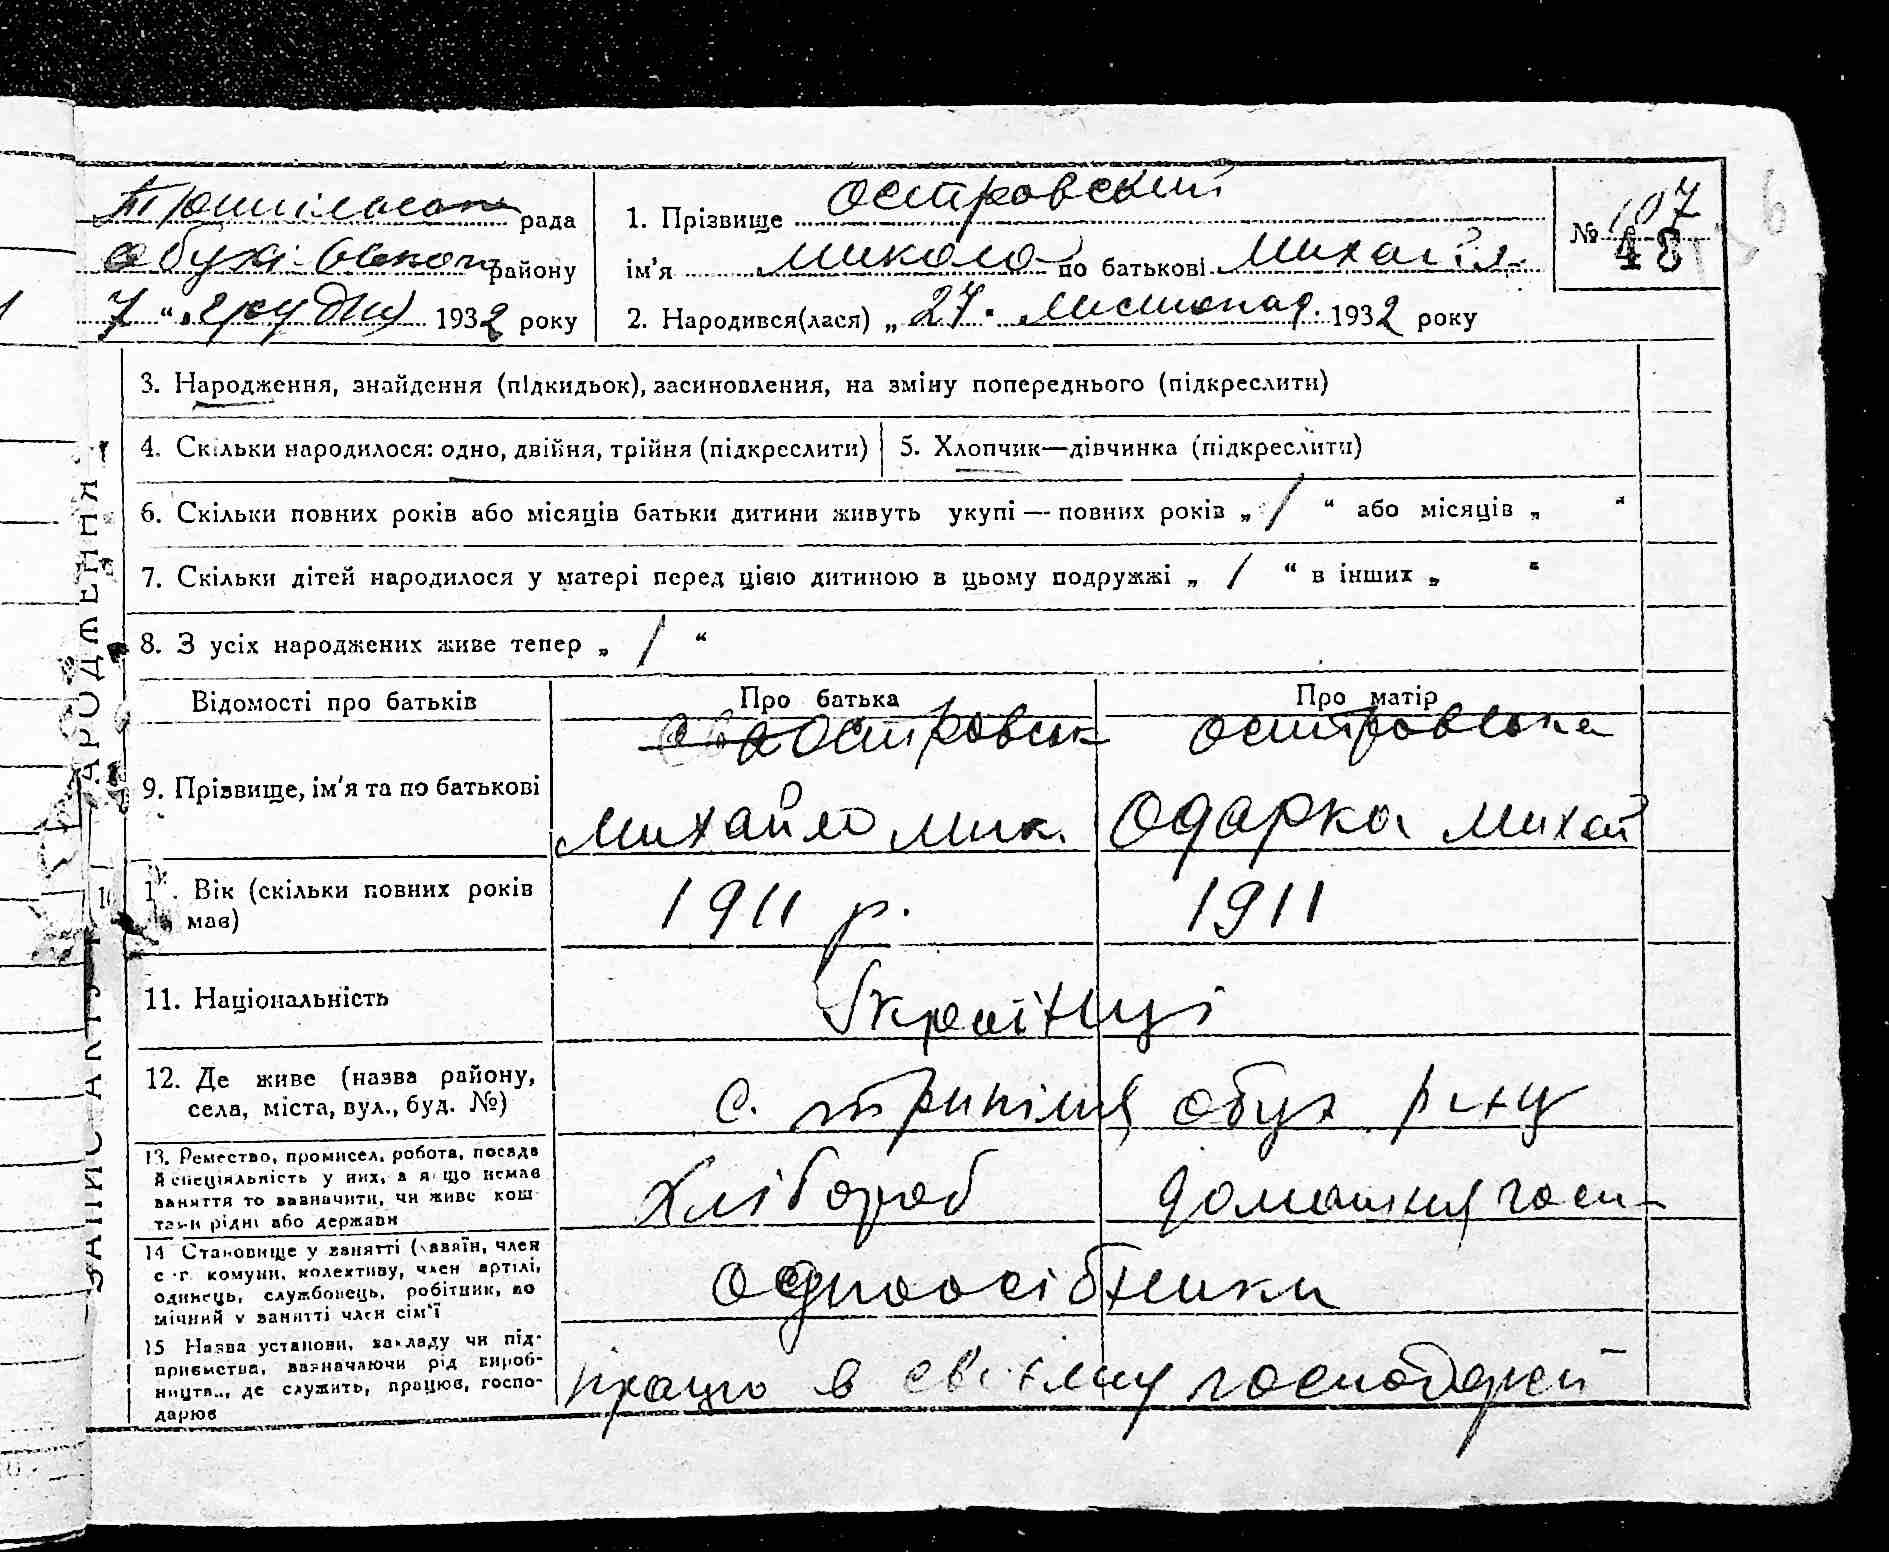 Трипільська рада
Обухівського району
7 " грудня 1932 року
1. Прізвище Островський
ім'я Микола по батькові Михайл.
2. Народився(лася) „ 27 " Листопад. 1932 року
№ 107
48
3. Народження, знайдення (підкидьок), засиновлення, на зміну попереднього (підкреслити)
4. Скільки народилося: одно, двійня, трійня (підкреслити)
5. Хлопчик—дівчинка (підкреслити)
6. Скільки повних років або місяців батьки дитини живуть укупі — повних років „ 1 “ або місяців „ “
7. Скільки дітей народилося у матері перед цією дитиною в цьому подружжі „ 1 “ в інших „ “
8. З усіх народжених живе тепер „ 1 “
Відомості про батьків
Про батька
Про матір
9. Прізвище, ім'я та по батькові
Островськ
Михайло Мик.
Островська
Одарка Михай
. Вік (скільки повних років
має)
1911 р.
1911
11. Національність
Українці
12. Де живе (назва району,
села, міста, вул., буд. №)
с. Трипілля Обух р-ну
13. Ремество, промисел, робота, посада
й спеціяльність у них, а якщо немає
заняття то зазначити, чи живе кош
тами рідні або держави
Хлібороб
домашня госп-
14 Становище у занятті (хазяїн, член
с.-г. комуни, колективу, член артілі,
одинець, службовець, робітник, по
мічний у занятті член сім'ї
одноосібники
15 Назва установи, закладу чи під-
приємства, зазначаючи рід вироб-
ництв.., де служить, працює, госпо-
дарює
в господарств
ЗАПИС АКТУ ПРО НАРОДЖЕННЯ